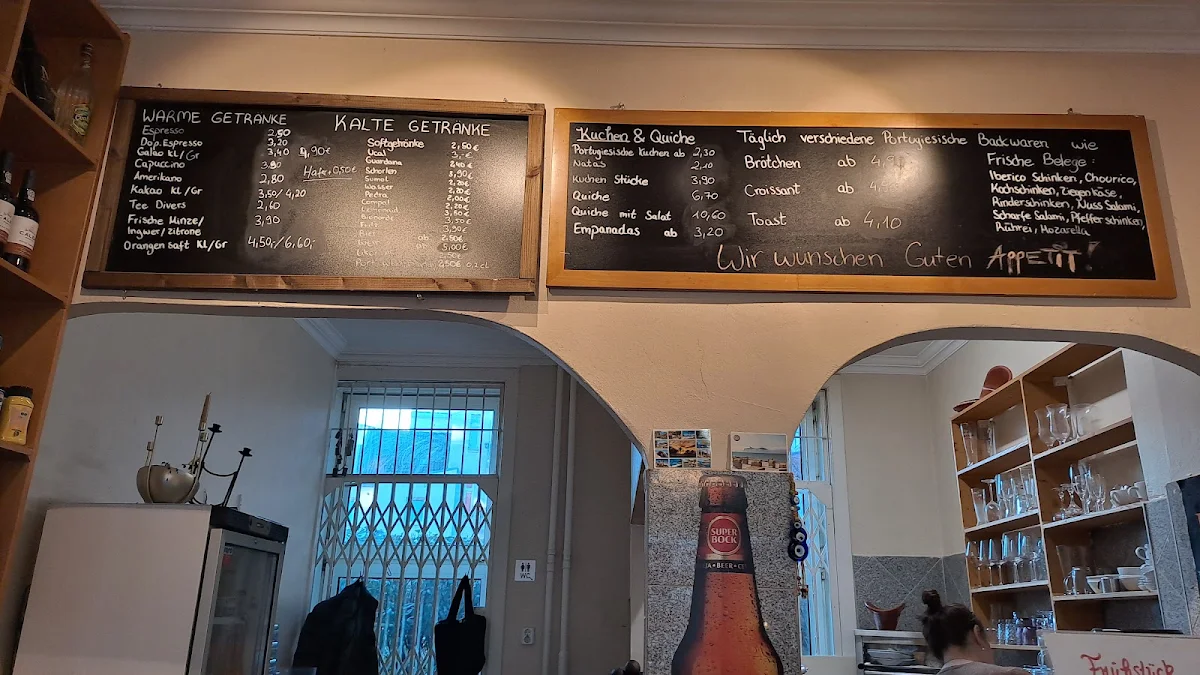 WARME GETRÄNKE
Espresso 2,50
Dop. Espresso 3,20
Galao kl/Gr 3,40 4,90€
Capuccino 3,90 Hafer+0,50€
Amerikano 2,80
Kakao KL/Gr 3,50/4,20
Tee Divers 2,60
Frische Minze/
Ingwer/Zitrone 3,90
Orangen Saft KL/Gr 4,50,-/6,60,-
KALTE GETRÄNKE
Softgetränke 2,50€
Ucal 3,-€
Guardana
Schorlen
Sumol
Wasser
Pedra
Compal
Kuchen & Quiche
Portugiesische Kuchen ab 2,30
Natas 2,10
Kuchen Stücke 3,90
Quiche 6,70
Quiche mit Salat 10,60
Empanadas ab 3,20
Täglich verschiedene Portugiesische Backwaren wie
Brötchen ab
Croissant ab
Toast ab 4,10
Frische Belege:
Iberico Schinken, Chourico,
Kochschinken, Ziegenkäse,
Rinderschinken, Nuss Salami,
Scharfe Salami, Pfeffer schinken,
Rührei, Mozarella
Wir wünschen Guten APPETIT!
SUPER
BOCK
WC
Frühstück